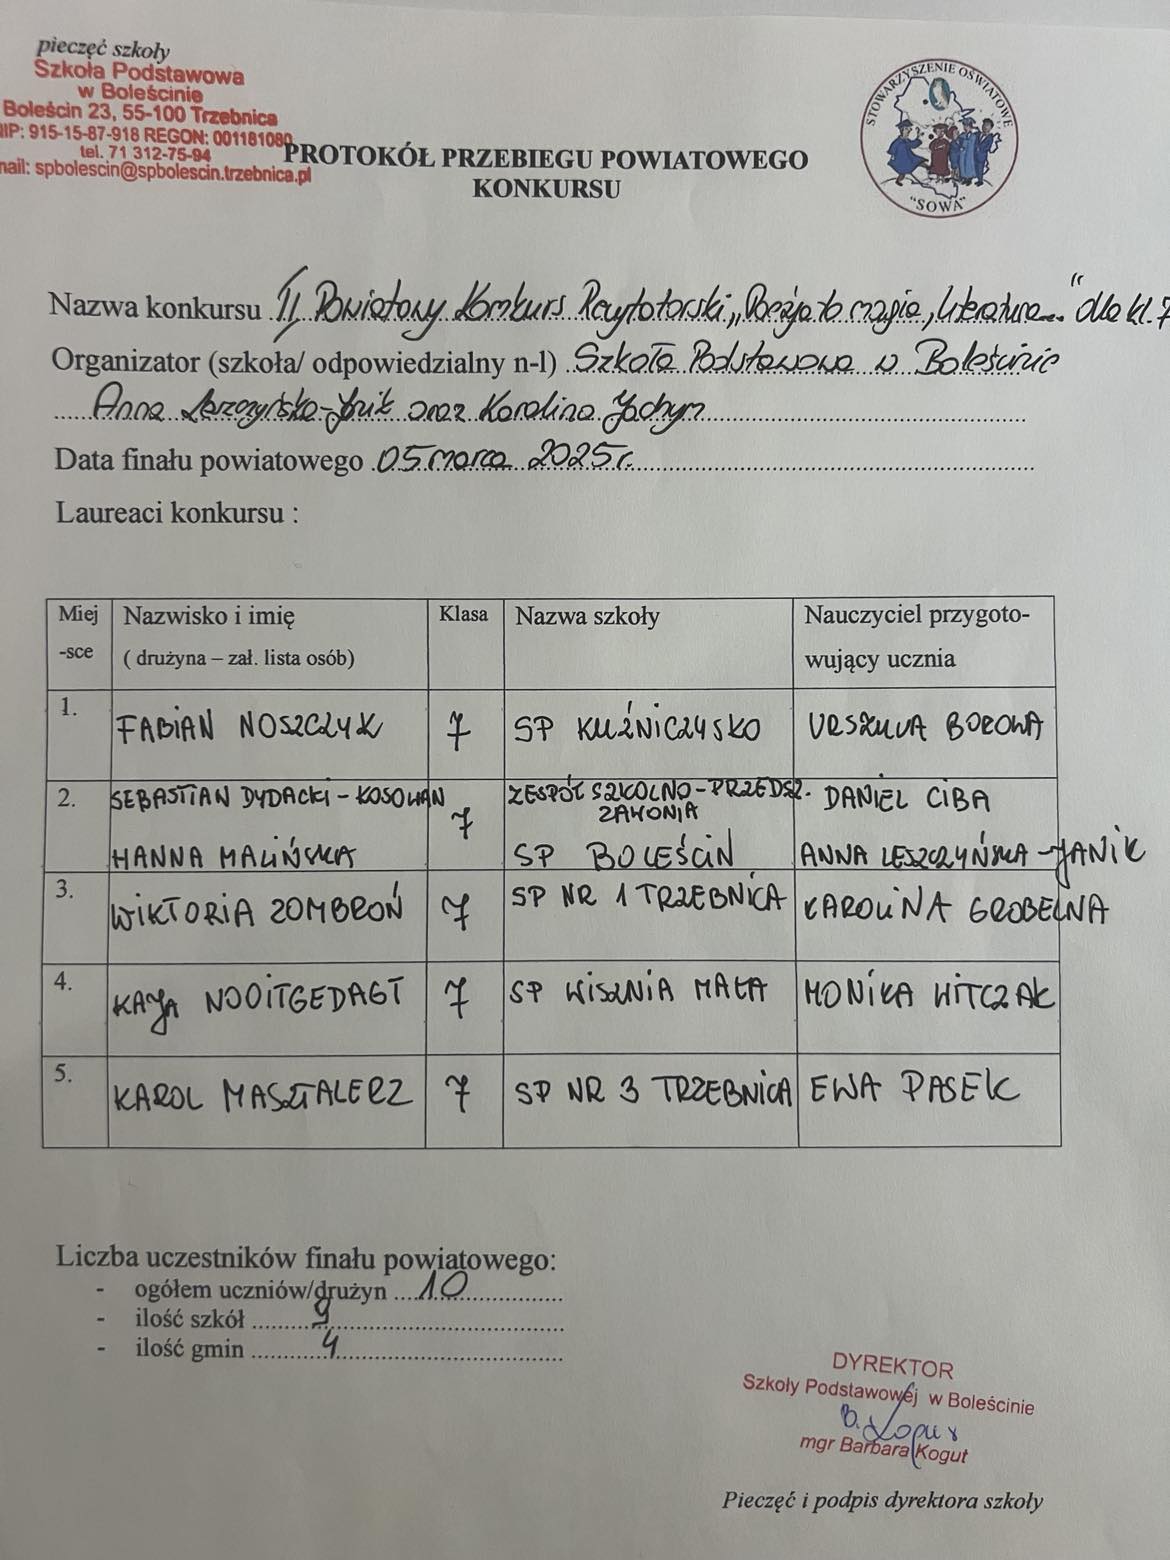 pieczęć szkoły
Szkoła Podstawowa
w Boleścinie
Boleścin 23, 55-100 Trzebnica
NIP: 915-15-87-918 REGON: 001181080
tel. 71 312-75-94
mail: spbolescin@spbolescin.trzebnica.pl
STOWARZYSZENIE OŚWIATOWE
"SOWA"
PROTOKÓŁ PRZEBIEGU POWIATOWEGO
KONKURSU
Nazwa konkursu II Powiatowy Konkurs Recytatorski „Poezja to magia, literatura..." dla kl. 7
Organizator (szkoła/ odpowiedzialny n-l) Szkoła Podstawowa w Boleścinie
Anna Leszczyńska-Janik oraz Karolina Jachym
Data finału powiatowego 05 marca 2025r.
Laureaci konkursu :
Miej -sce Nazwisko i imię ( drużyna – zał. lista osób) Klasa Nazwa szkoły Nauczyciel przygoto- wujący ucznia
1. FABIAN NOSZCZYK 7 SP KUŹNICZYSKO URSZULA BOROWA
2. SEBASTIAN DYDACKI - KOSOWAN 7 ZESPÓŁ SZKOLNO-PRZEDSZ. ZAWONIA DANIEL CIBA
HANNA MALIŃSKA SP BOLEŚCIN ANNA LESZCZYŃSKA - JANIK
3. WIKTORIA ZOMBROŃ 7 SP NR 1 TRZEBNICA KAROLINA GROBELNA
4. KAJA NOOITGEDAGT 7 SP WISZNIA MAŁA MONIKA WITCZAK
5. KAROL MASZTALERZ 7 SP NR 3 TRZEBNICA EWA PASEK
Liczba uczestników finału powiatowego:
- ogółem uczniów/drużyn 10
- ilość szkół 9
- ilość gmin 4
DYREKTOR
Szkoły Podstawowej w Boleścinie
mgr Barbara Kogut
Pieczęć i podpis dyrektora szkoły